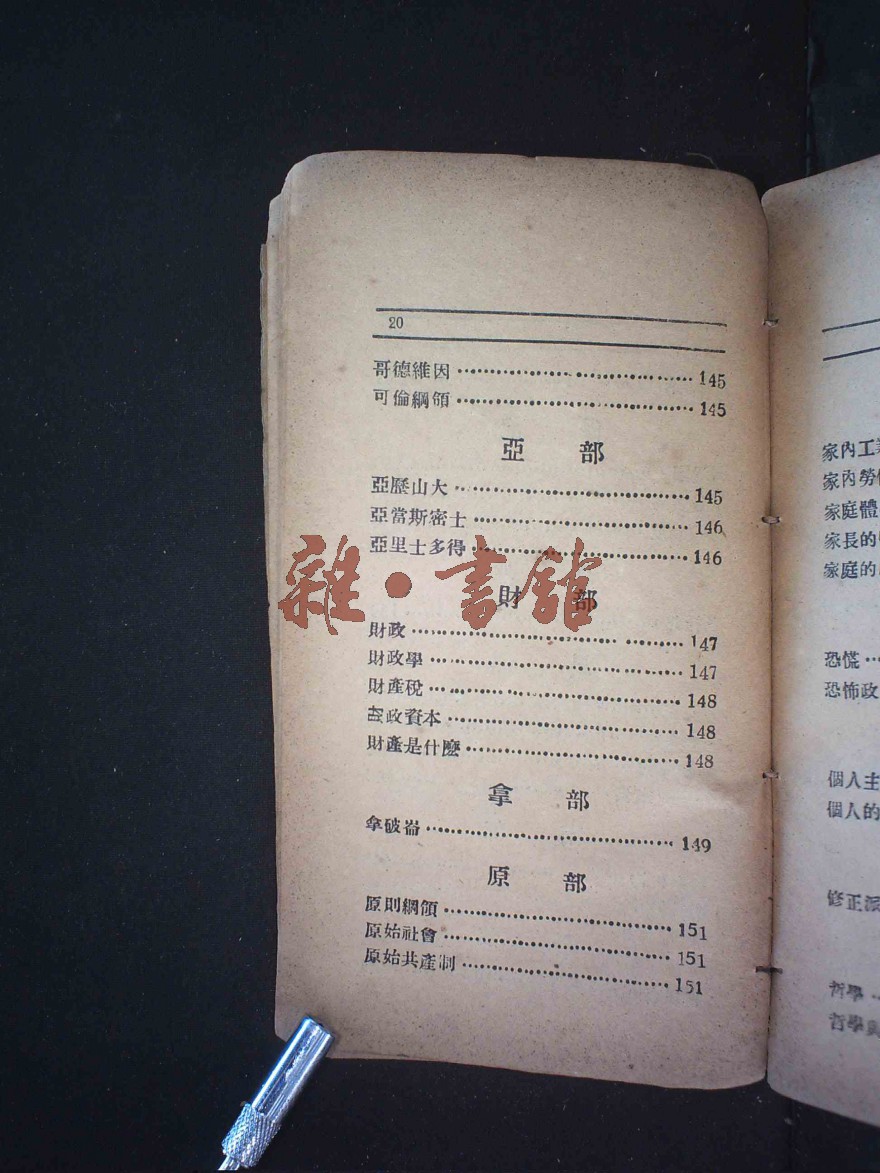 20
哥德維因 145
可倫綱領 145
亞部
亞歷山大 145
亞當斯密士 146
亞里士多得 146
雜·書館
財部
財政 147
財政學 147
財產稅 148
政資本 148
財產是什麼 148
拿部
拿破崙 149
原部
原則綱領 151
原始社會 151
原始共產制 151
家內工
家內勞
家庭體
家長的
家庭的
恐慌
恐怖政
個人主
個人的
修正派
哲學
哲學與